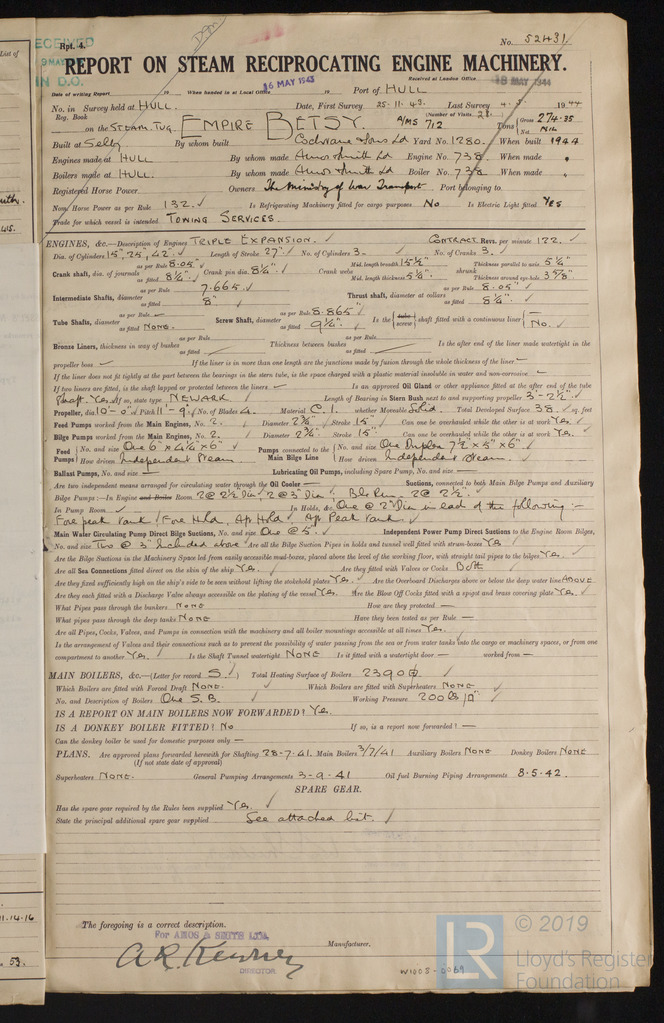 List of
RECEIVED
9 MAY
IN D.O.
Rpt. 4.
No. 52431.
REPORT ON STEAM RECIPROCATING ENGINE MACHINERY.
Received at London Office
16 MAY 1943
18 MAY 1944
Date of writing Report 19 When handed in at Local Office 19 Port of HULL
No. in Survey held at HULL. Date, First Survey 25-11-43. Last Survey 1944
Reg. Book (Number of Visits 28
on the STEAM. TUG. EMPIRE BETSY. A/MS 712 Tons Gross 274.35 Net NIL
Built at Selby By whom built Cochrane & Sons Ld Yard No. 1280. When built 1944
Engines made at HULL By whom made Amos & Smith Ld Engine No. 738 When made "
Boilers made at HULL. By whom made Amos & Smith Ld Boiler No. 738 When made "
Registered Horse Power Owners The Ministry of War Transport Port belonging to
Nom. Horse Power as per Rule 132. Is Refrigerating Machinery fitted for cargo purposes No Is Electric Light fitted Yes
Trade for which vessel is intended TOWING SERVICES.
ENGINES, &c.—Description of Engines TRIPLE EXPANSION. CONTRACT Revs. per minute 122.
Dia. of Cylinders 15", 25", 42" Length of Stroke 27" No. of Cylinders 3. No. of Cranks 3.
Crank shaft, dia. of journals as per Rule 8.05" as fitted 8¼" Crank pin dia. 8¼" Crank webs Mid. length breadth 15½" Mid. length thickness 5¼" shrunk Thickness parallel to axis 5¼" Thickness around eye-hole 3⅝"
Intermediate Shafts, diameter as per Rule 7.665" as fitted 8" Thrust shaft, diameter at collars as per Rule 8.05" as fitted 8¼"
Tube Shafts, diameter as per Rule — as fitted NONE. Screw Shaft, diameter as per Rule 8.865" as fitted 9¼" Is the tube screw shaft fitted with a continuous liner — No.
Bronze Liners, thickness in way of bushes as per Rule — as fitted — Thickness between bushes as per Rule — as fitted — Is the after end of the liner made watertight in the
propeller boss — If the liner is in more than one length are the junctions made by fusion through the whole thickness of the liner —
If the liner does not fit tightly at the part between the bearings in the stern tube, is the space charged with a plastic material insoluble in water and non-corrosive —
If two liners are fitted, is the shaft lapped or protected between the liners — Is an approved Oil Gland or other appliance fitted at the after end of the tube
shaft. Yes. If so, state type NEWARK Length of Bearing in Stern Bush next to and supporting propeller 3'-2½"
Propeller, dia. 10'-0" Pitch 11'-9" No. of Blades 4. Material C.I. whether Moveable Solid. Total Developed Surface 38 sq. feet
Feed Pumps worked from the Main Engines, No. 2. Diameter 2¾" Stroke 15" Can one be overhauled while the other is at work Yes.
Bilge Pumps worked from the Main Engines, No. 2. Diameter 2¾" Stroke 15" Can one be overhauled while the other is at work Yes.
Feed Pumps No. and size One 6" x 4¼" x 6" How driven Independent Steam Pumps connected to the Main Bilge Line No. and size One Duplex 7½" x 5" x 6" How driven Independent Steam.
Ballast Pumps, No. and size — Lubricating Oil Pumps, including Spare Pump, No. and size —
Are two independent means arranged for circulating water through the Oil Cooler — Suctions, connected to both Main Bilge Pumps and Auxiliary
Bilge Pumps :—In Engine and Boiler Room 2 @ 2½" Dia 2 @ 3" Dia 2 @ 2½".
In Pump Room — In Holds, &c. One @ 2" Dia in each of the following :-
Fore peak tank, Fore Hold, Aft Hold, Aft Peak Tank
Main Water Circulating Pump Direct Bilge Suctions, No. and size One @ 5". Independent Power Pump Direct Suctions to the Engine Room Bilges,
No. and size Two @ 3" included above Are all the Bilge Suction Pipes in holds and tunnel well fitted with strum-boxes Yes
Are the Bilge Suctions in the Machinery Space led from easily accessible mud-boxes, placed above the level of the working floor, with straight tail pipes to the bilges Yes.
Are all Sea Connections fitted direct on the skin of the ship Yes. Are they fitted with Valves or Cocks Both
Are they fixed sufficiently high on the ship's side to be seen without lifting the stokehold plates Yes. Are the Overboard Discharges above or below the deep water line ABOVE
Are they each fitted with a Discharge Valve always accessible on the plating of the vessel Yes. Are the Blow Off Cocks fitted with a spigot and brass covering plate Yes.
What Pipes pass through the bunkers NONE How are they protected —
What pipes pass through the deep tanks NONE Have they been tested as per Rule —
Are all Pipes, Cocks, Valves, and Pumps in connection with the machinery and all boiler mountings accessible at all times Yes.
Is the arrangement of Valves and their connections such as to prevent the possibility of water passing from the sea or from water tanks into the cargo or machinery spaces, or from one
compartment to another Yes. Is the Shaft Tunnel watertight NONE Is it fitted with a watertight door — worked from —
MAIN BOILERS, &c.—(Letter for record S.) Total Heating Surface of Boilers 2390
Which Boilers are fitted with Forced Draft NONE. Which Boilers are fitted with Superheaters NONE
No. and Description of Boilers One S.B. Working Pressure 200 lbs/□"
IS A REPORT ON MAIN BOILERS NOW FORWARDED? Yes.
IS A DONKEY BOILER FITTED? No If so, is a report now forwarded? —
Can the donkey boiler be used for domestic purposes only —
PLANS. Are approved plans forwarded herewith for Shafting 28-7-41. Main Boilers 3/7/41 Auxiliary Boilers NONE Donkey Boilers NONE
(If not state date of approval)
Superheaters NONE. General Pumping Arrangements 3-9-41 Oil fuel Burning Piping Arrangements 8.5.42.
SPARE GEAR.
Has the spare gear required by the Rules been supplied Yes.
State the principal additional spare gear supplied See attached list.
11.14.16
53.
The foregoing is a correct description.
For AMOS & SMITH LTD.
Manufacturer.
DIRECTOR
W1005-0069
LR
© 2019
Lloyd's Register
Foundation